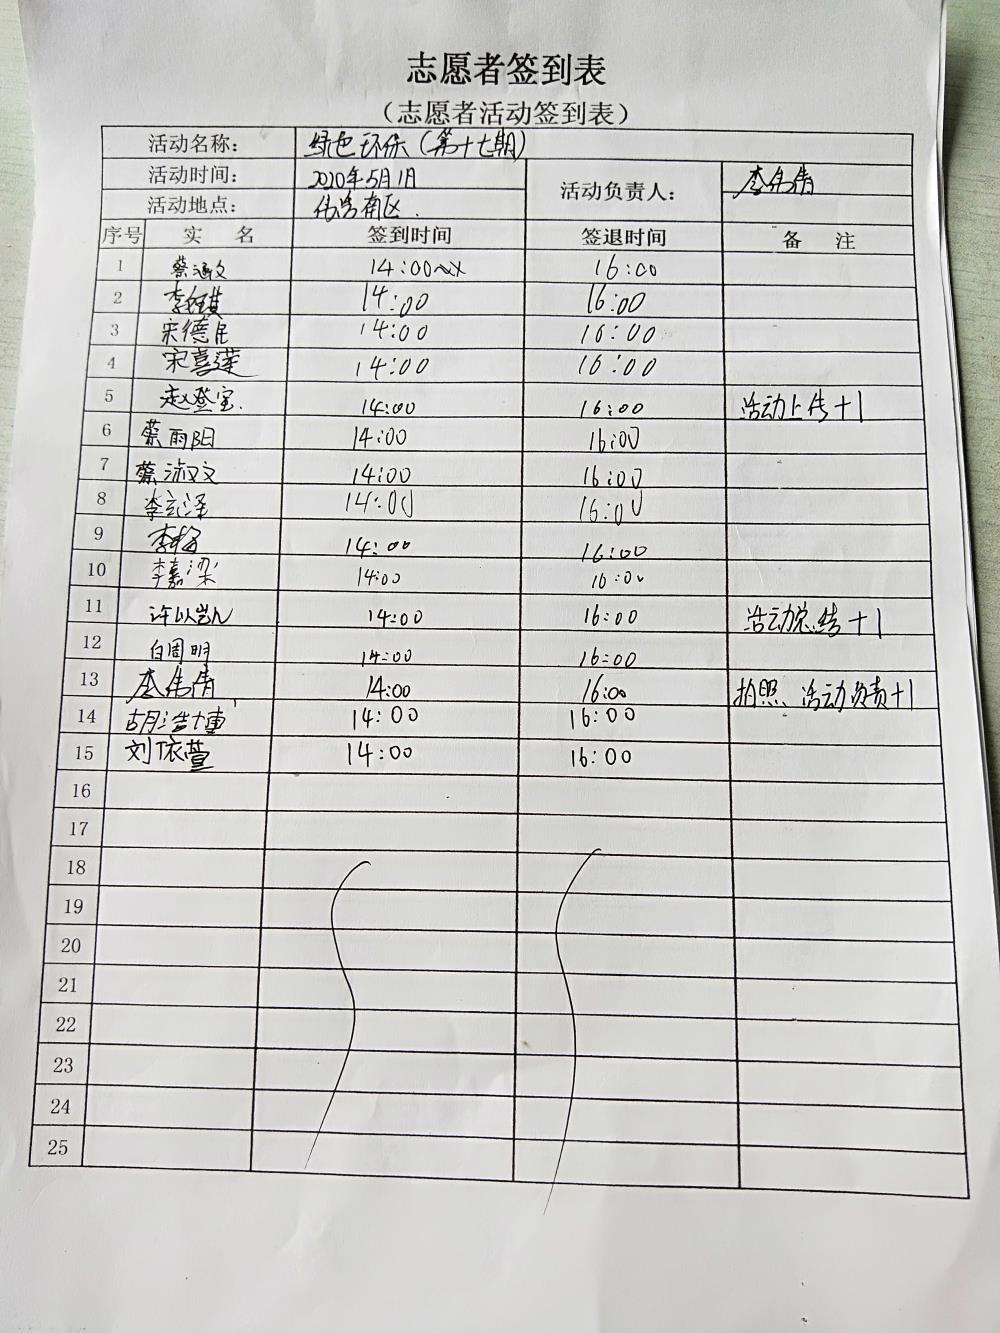 志愿者签到表
（志愿者活动签到表）
活动名称： 绿色环保（第十七期）
活动时间： 2020年5月1日 活动负责人： 李伟倩
活动地点： 南区.
序号 实 名 签到时间 签退时间 备 注
1 蔡涵文 14:00 16:00
2 李 14:00 16:00
3 宋德民 14:00 16:00
4 宋喜莲 14:00 16:00
5 赵登宝. 14:00 16:00 活动上传+1
6 蔡雨阳 14:00 16:00
7 蔡淑文 14:00 16:00
8 李泽 14:00 16:00
9 李 14:00 16:00
10 李嘉梁 14:00 16:00
11 许以岂凡 14:00 16:00 活动总结+1
12 白周明 14:00 16:00
13 李伟倩 14:00 16:00 拍照、活动负责+1
14 胡浩博 14:00 16:00
15 刘依萱 14:00 16:00
16
17
18
19
20
21
22
23
24
25